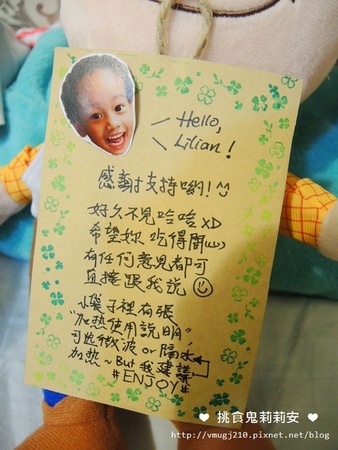 Hello,
Lilian!
感謝支持喲!
好久不見哈哈XD
希望妳吃得開心
有任何意見都可
直接跟我說
袋子裡有張
"加热使用說明"
可選微波or隔水
加热~But我建議
#ENJOY#
♥ 挑食鬼莉莉安 ♥
http://vmugj210.pixnet.net/blog